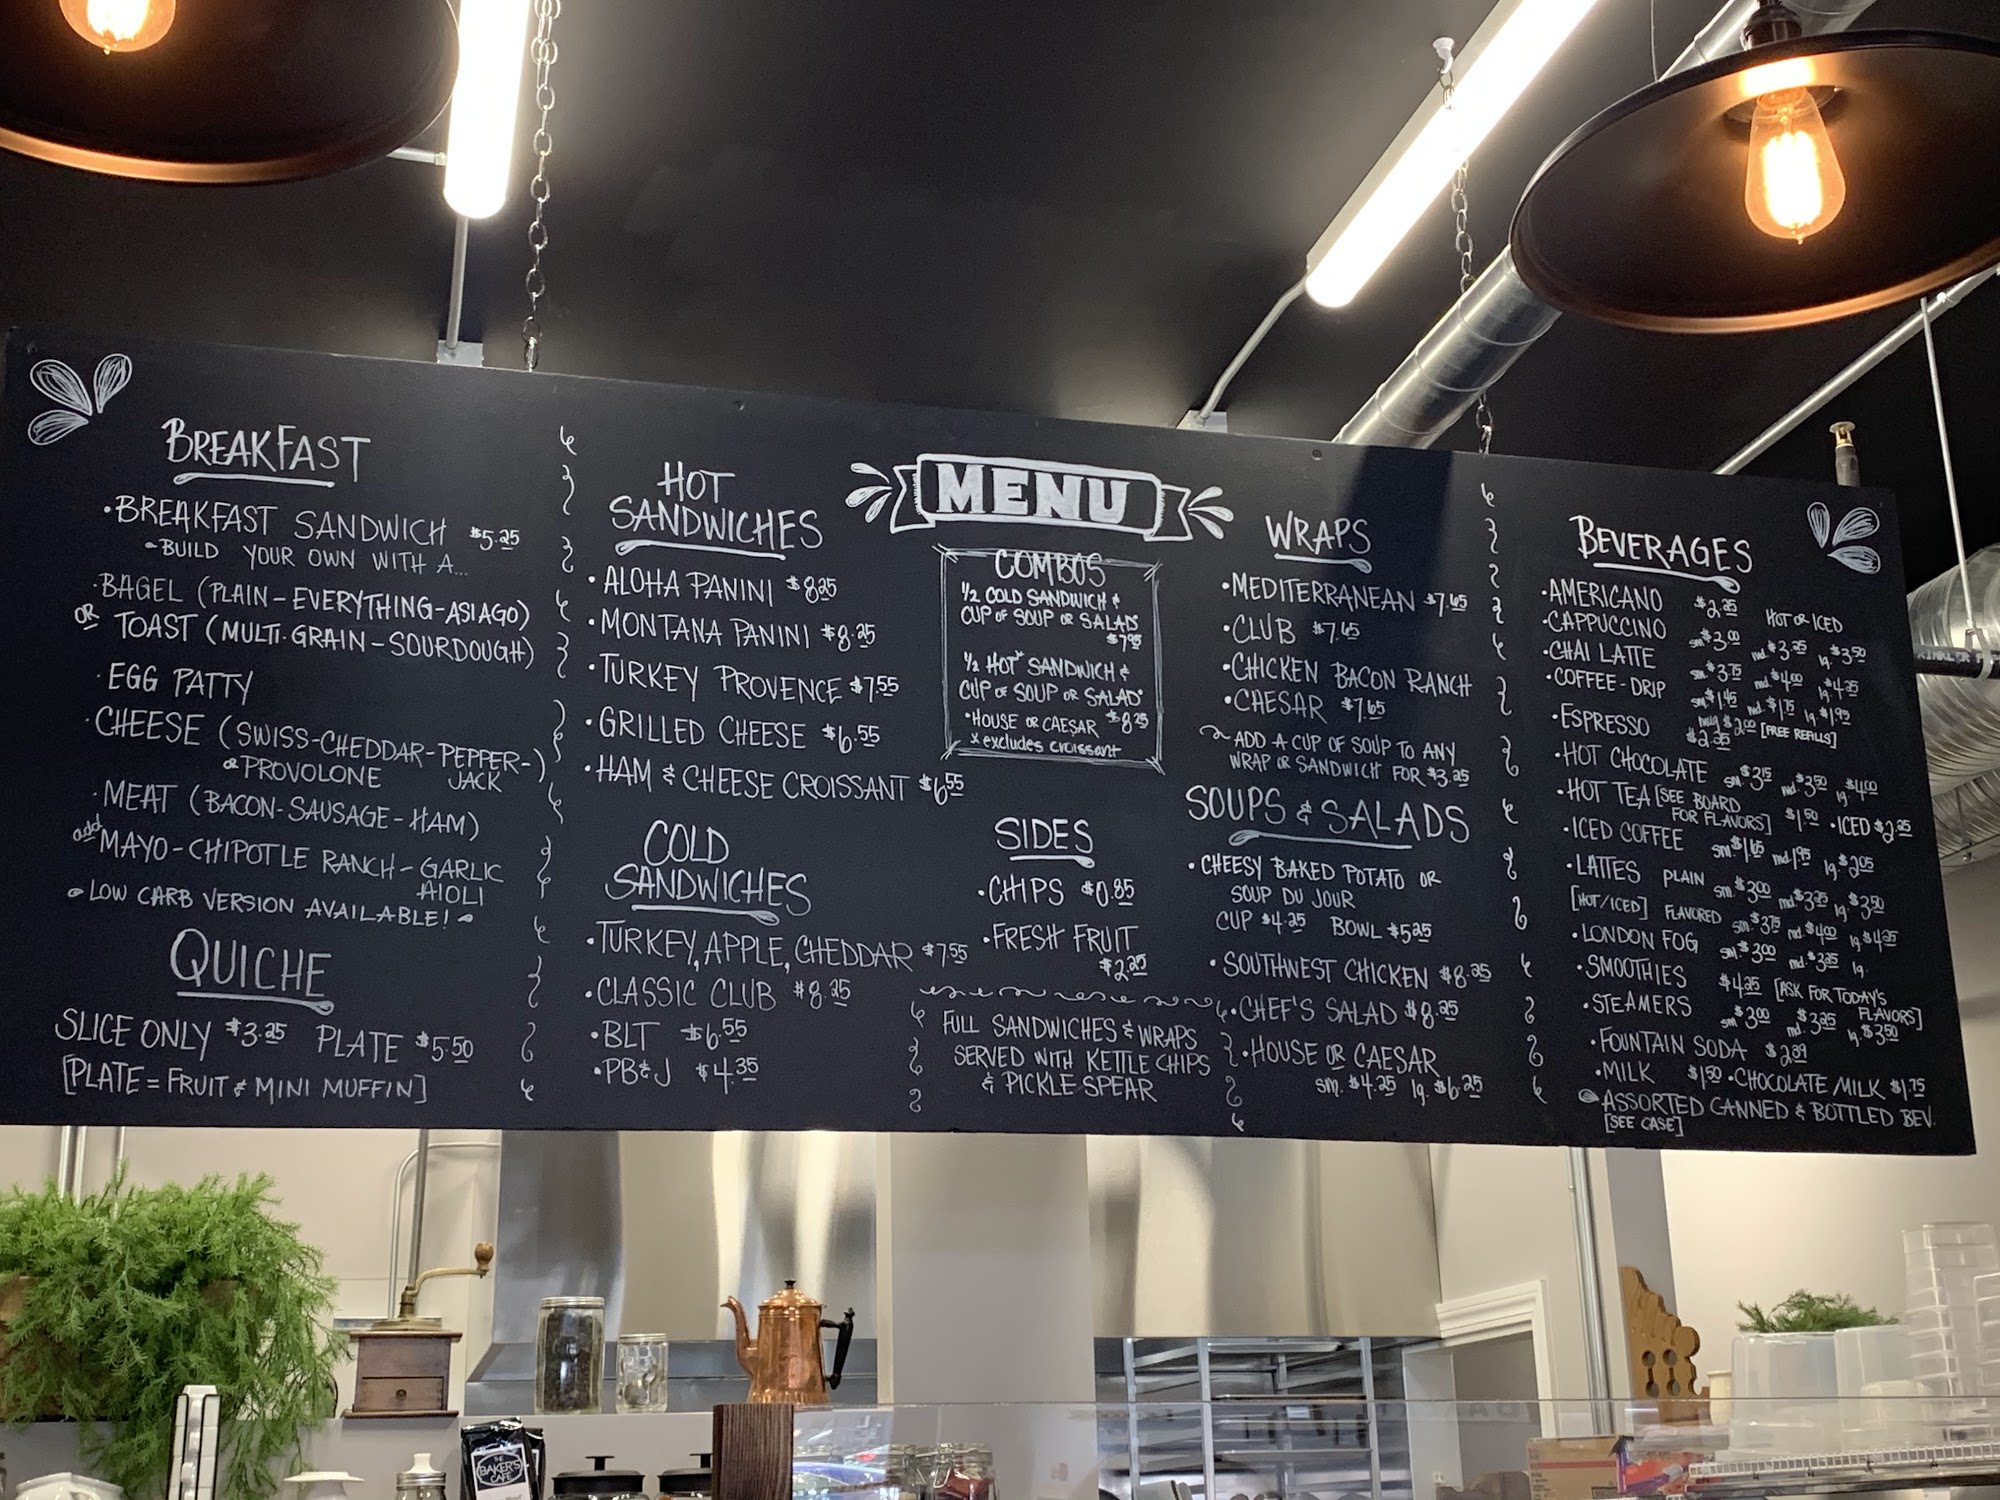 MENU
BREAKFAST
•BREAKFAST SANDWICH $5.25
-BUILD YOUR OWN WITH A...
•BAGEL (PLAIN-EVERYTHING-ASIAGO)
OR TOAST (MULTI-GRAIN-SOURDOUGH)
•EGG PATTY
•CHEESE (SWISS-CHEDDAR-PEPPER-JACK
OR PROVOLONE)
•MEAT (BACON-SAUSAGE-HAM)
add MAYO-CHIPOTLE RANCH-GARLIC
AIOLI
LOW CARB VERSION AVAILABLE!
QUICHE
SLICE ONLY $3.25 PLATE $5.50
[PLATE = FRUIT & MINI MUFFIN]
HOT
SANDWICHES
•ALOHA PANINI $8.25
•MONTANA PANINI $8.25
•TURKEY PROVENCE $7.55
•GRILLED CHEESE $6.55
•HAM & CHEESE CROISSANT $6.55
COLD
SANDWICHES
•TURKEY, APPLE, CHEDDAR $7.55
•CLASSIC CLUB $8.25
•BLT $6.55
•PB&J $4.35
COMBOS
1/2 COLD SANDWICH &
CUP OF SOUP OR SALAD*
$7.95
1/2 HOT* SANDWICH &
CUP OF SOUP OR SALAD*
•HOUSE OR CAESAR $8.25
* excludes croissant
SIDES
•CHIPS $0.85
•FRESH FRUIT
$2.25
FULL SANDWICHES & WRAPS
SERVED WITH KETTLE CHIPS
& PICKLE SPEAR
WRAPS
•MEDITERRANEAN $7.65
•CLUB $7.65
•CHICKEN BACON RANCH
•CAESAR $7.65
~ADD A CUP OF SOUP TO ANY
WRAP OR SANDWICH FOR $3.25
SOUPS & SALADS
•CHEESY BAKED POTATO OR
SOUP DU JOUR
CUP $4.25 BOWL $5.25
•SOUTHWEST CHICKEN $8.25
•CHEF'S SALAD $8.25
•HOUSE OR CAESAR
sm. $4.25 lg. $6.25
BEVERAGES
•AMERICANO $2.25 HOT OR ICED
•CAPPUCCINO sm $3.00 md $3.25 lg. $3.50
•CHAI LATTE sm. $3.75 md. $4.00 lg. $4.25
•COFFEE-DRIP sm $1.45 md. $1.75 lg. $1.95
mug $2.00 [FREE REFILLS]
•ESPRESSO $2.25
•HOT CHOCOLATE sm $3.15 md $3.50 lg. $4.00
•HOT TEA [SEE BOARD
FOR FLAVORS] $1.50 •ICED $2.25
•ICED COFFEE sm. $1.65 md 1.95 lg. $2.05
•LATTES PLAIN sm. $3.00 md $3.25 lg. $3.50
[HOT/ICED] FLAVORED sm. $3.75 md. $4.00 lg. $4.25
•LONDON FOG sm. $3.00 md. $3.25 lg.
•SMOOTHIES $4.25 [ASK FOR TODAY'S
FLAVORS]
•STEAMERS sm $3.00 md. $3.25 lg. $3.50
•FOUNTAIN SODA $2.29
•MILK $1.50 •CHOCOLATE MILK $1.75
ASSORTED CANNED & BOTTLED BEV.
[SEE CASE]
THE
BAKER'S
CAFE